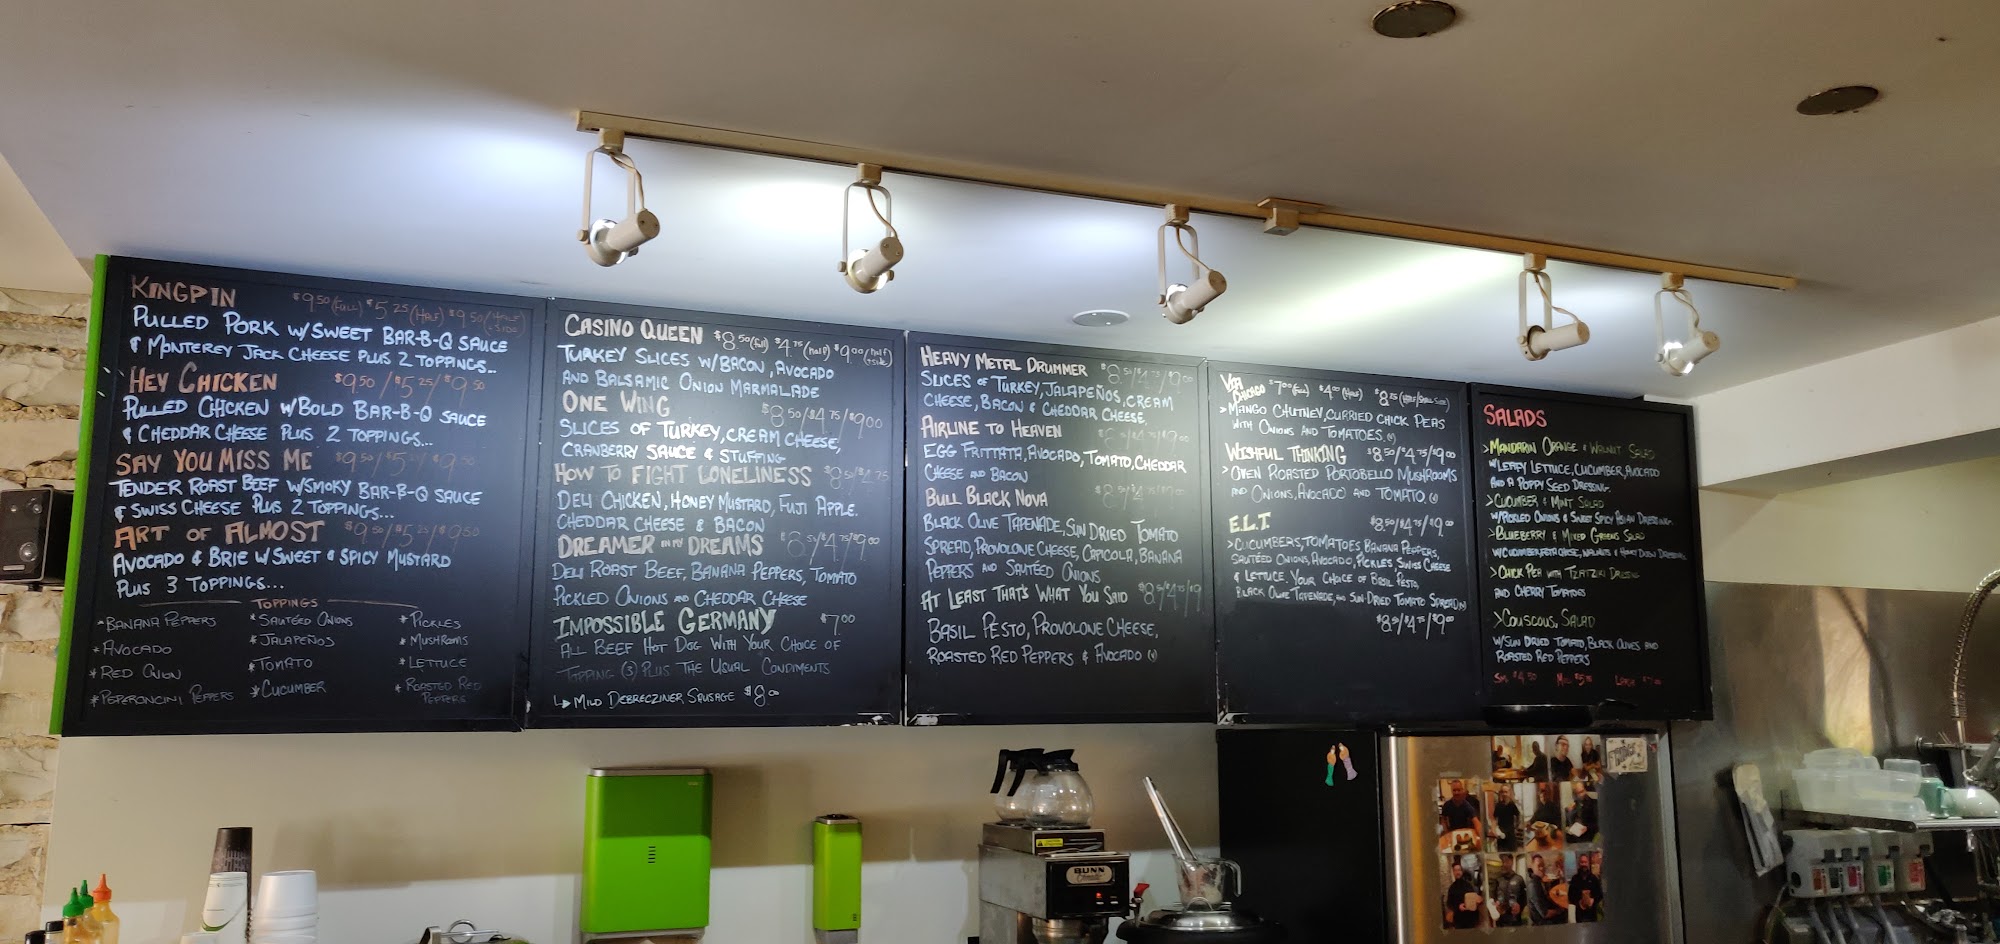 KINGPIN $9.50 (FULL) $5.25 (HALF) $9.50 (HALF + SIDE)
PULLED PORK W/SWEET BAR-B-Q SAUCE
& MONTEREY JACK CHEESE PLUS 2 TOPPINGS...
HEY CHICKEN $9.50/$5.25/$9.50
PULLED CHICKEN W/BOLD BAR-B-Q SAUCE
& CHEDDAR CHEESE PLUS 2 TOPPINGS...
SAY YOU MISS ME $9.50/$5.25/$9.50
TENDER ROAST BEEF W/SMOKY BAR-B-Q SAUCE
& SWISS CHEESE PLUS 2 TOPPINGS...
ART OF ALMOST $9.50/$5.25/$9.50
AVOCADO & BRIE W/SWEET & SPICY MUSTARD
PLUS 3 TOPPINGS...
TOPPINGS
* BANANA PEPPERS * SAUTÉED ONIONS * PICKLES
* AVOCADO * JALAPEÑOS * MUSHROOMS
* RED ONION * TOMATO * LETTUCE
* PEPERONCINI PEPPERS * CUCUMBER * ROASTED RED
PEPPERS
CASINO QUEEN $8.50 (full) $4.75 (half) $9.00 (half + side)
TURKEY SLICES W/BACON, AVOCADO
AND BALSAMIC ONION MARMALADE
ONE WING $8.50/$4.75/$9.00
SLICES OF TURKEY, CREAM CHEESE,
CRANBERRY SAUCE & STUFFING
HOW TO FIGHT LONELINESS $8.50/$4.75
DELI CHICKEN, HONEY MUSTARD, FUJI APPLE.
CHEDDAR CHEESE & BACON
DREAMER IN MY DREAMS $8.50/$4.75/$9.00
DELI ROAST BEEF, BANANA PEPPERS, TOMATO
PICKLED ONIONS AND CHEDDAR CHEESE
IMPOSSIBLE GERMANY $7.00
ALL BEEF HOT DOG WITH YOUR CHOICE OF
TOPPING (3) PLUS THE USUAL CONDIMENTS
MILD DEBRECZINER SAUSAGE $8.00
HEAVY METAL DRUMMER $8.50/$4.75/$9.00
SLICES OF TURKEY, JALAPEÑOS, CREAM
CHEESE, BACON & CHEDDAR CHEESE,
AIRLINE TO HEAVEN $8.50/$4.75/$9.00
EGG FRITTATA, AVOCADO, TOMATO, CHEDDAR
CHEESE AND BACON
BULL BLACK NOVA $8.50/$4.75/$9.00
BLACK OLIVE TAPENADE, SUN DRIED TOMATO
SPREAD, PROVOLONE CHEESE, CAPICOLA, BANANA
PEPPERS AND SAUTÉED ONIONS
AT LEAST THAT'S WHAT YOU SAID $8.50/$4.75/$9
BASIL PESTO, PROVOLONE CHEESE,
ROASTED RED PEPPERS & AVOCADO (v)
VIA CHICAGO $7.00 (FULL) $4.00 (HALF) $8.25 (HALF/SMALL SIDE)
> MANGO CHUTNEY, CURRIED CHICK PEAS
WITH ONIONS AND TOMATOES. (v)
WISHFUL THINKING $8.50/$4.75/$9.00
> OVEN ROASTED PORTOBELLO MUSHROOMS
AND ONIONS, AVOCADO AND TOMATO. (v)
E.L.T. $8.50/$4.75/$9.00
> CUCUMBERS, TOMATOES BANANA PEPPERS,
SAUTÉED ONIONS, AVOCADO, PICKLES, SWISS CHEESE
& LETTUCE. YOUR CHOICE OF BASIL PESTO,
BLACK OLIVE TAPENADE, SUN-DRIED TOMATO SPREAD (v)
$8.50/$4.75/$9.00
SALADS
> MANDARIN ORANGE & WALNUT SALAD
W/LEAFY LETTUCE, CUCUMBER, AVOCADO
AND A POPPY SEED DRESSING.
> CUCUMBER & MINT SALAD
W/PICKLED ONIONS & SWEET SPICY ASIAN DRESSING.
> BLUEBERRY & MIXED GREENS SALAD
W/CUCUMBER, FETA CHEESE, WALNUTS & HONEY DIJON DRESSING
> CHICK PEA WITH TZATZIKI DRESSING
AND CHERRY TOMATOES
> COUSCOUS, SALAD
W/SUN DRIED TOMATO, BLACK OLIVES AND
ROASTED RED PEPPERS
SM. $4.50 MED $5.75 LARGE $7.00
BUNN